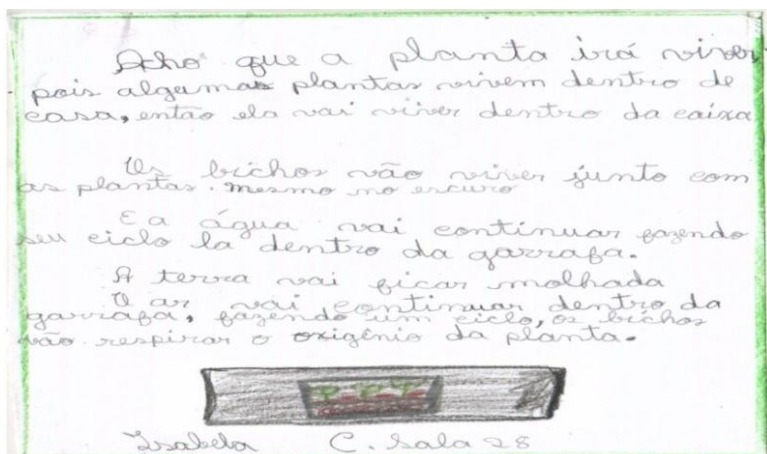 Acho que a planta irá viver
pois algumas plantas vivem dentro de
casa, então ela vai viver dentro da caixa
Os bichos vão viver junto com
as plantas. mesmo no escuro
E a água vai continuar fazendo
seu ciclo la dentro da garrafa.
A terra vai ficar molhada
O ar vai continuar dentro da
garrafa, fazendo um ciclo, os bichos
vão respirar o oxigênio da planta.
Isabela C. Sala 28